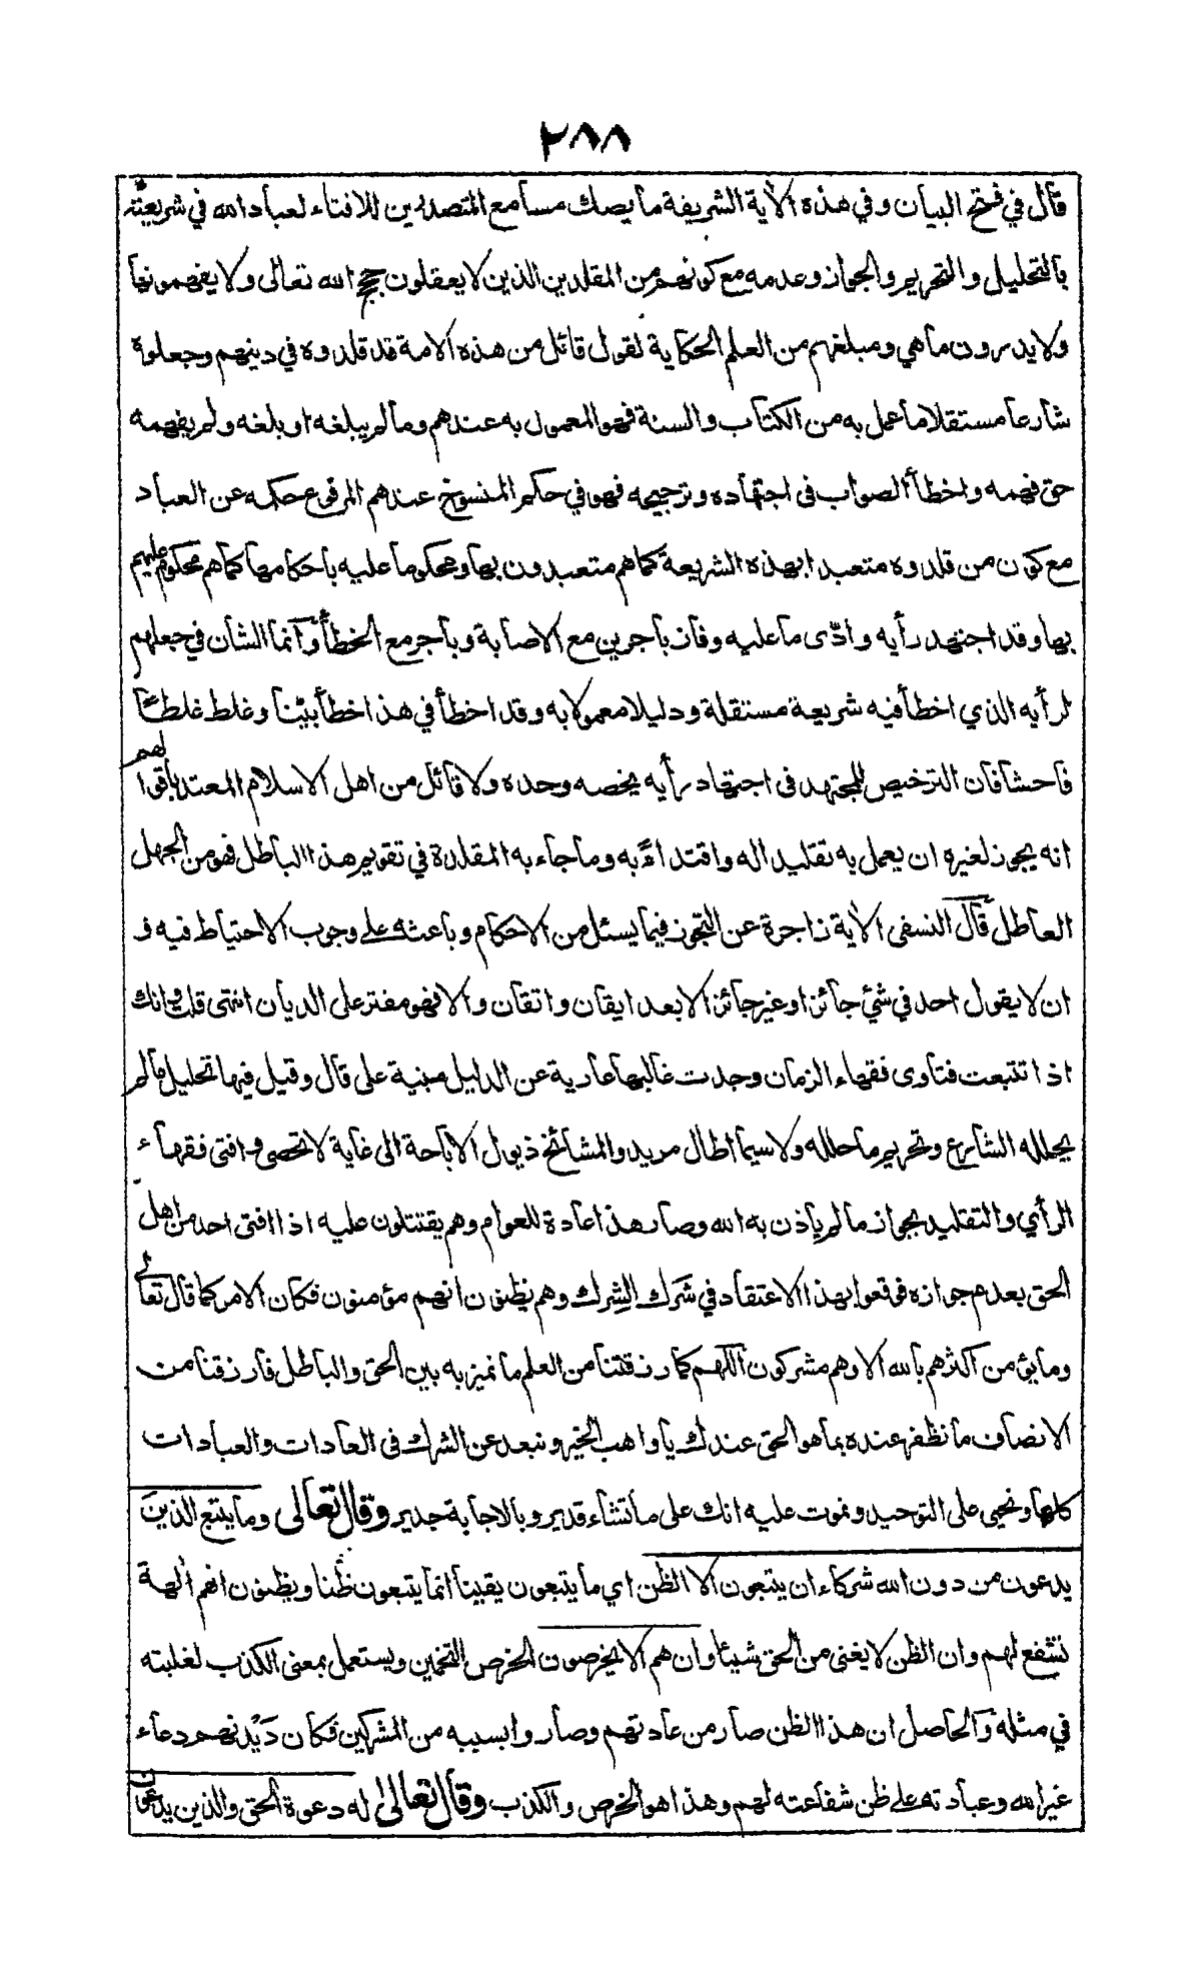 ٢٨٨
قال في فتح البيان وفي هذه الآية الشريفة ما يصك مسامع المتصدرين للافتاء لعباد الله في شريعته
بالتحليل والتحريم والجواز وعدمه مع كونهم من المقلدين الذين لا يعقلون حجج الله تعالى ولا يفهمونها
ولا يدرون ما هي ومبلغهم من العلم الحكاية لقول قائل من هذه الامة قد قلدوه في دينهم وجعلوه
شارعا مستقلا ما عمل به من الكتاب والسنة فهو المعمول به عندهم وما لم يبلغه او بلغه ولم يفهمه
حق فهمه واخطأ الصواب في اجتهاده وترجيحه فهو في حكم المنسوخ عندهم المرفوع حكمه عن العباد
مع كون من قلدوه متعبدا بهذه الشريعة كما هم متعبدون بها ومحكوما عليه باحكامها كما هم محكوم عليهم
بها وقد اجتهد رأيه وادّى ما عليه وفاز باجرين مع الاصابة وباجر مع الخطأ وانما الشان في جعلهم
لرأيه الذي اخطأ فيه شريعة مستقلة ودليلا معمولا به وقد اخطأ في هذا خطأ بيّنا وغلط غلطا
فاحشا فان الترخيص للمجتهد في اجتهاد رأيه يخصه وحده ولا قائل من اهل الاسلام المعتد باقوالهم
انه يجوز لغيره ان يعمل به تقليدا له واقتداءً به وما جاء به المقلدة في تقويم هذا الباطل فهو من الجهل
العاطل قال النسفي الآية زاجرة عن التجوز فيما يسئل من الاحكام وباعثة على وجوب الاحتياط فيه و
ان لا يقول احد في شيء جائز او غير جائز الا بعد ايقان واتقان والا فهو مفتر على الديان انتهى قلت وانك
اذا تتبعت فتاوى فقهاء الزمان وجدت غالبها عارية عن الدليل مبنية على قال وقيل فيها تحليل ما لم
يحلله الشارع وتحريم ما حلله ولا سيما اطال مريدو المشائخ ذيول الاباحة الى غاية لا تحصى وافتى فقهاء
الرأي والتقليد بجواز ما لم ياذن به الله وصار هذا عادة للعوام وهم يقتتلون عليه اذا افتى احد من اهل
الحق بعدم جوازه فوقعوا بهذا الاعتقاد في شَرَك الشِرك وهم يظنون انهم مؤمنون فكان الامر كما قال تعالى
وما يؤمن اكثرهم بالله الا وهم مشركون اللهم كما رزقتنا من العلم ما نميز به بين الحق والباطل فارزقنا من
الانصاف ما نظفر عنده بما هو الحق عندك يا واهب الخير ونبعد عن الشرك في العادات والعبادات
كلها ونحيى على التوحيد ونموت عليه انك على ما تشاء قدير وبالاجابة جدير وقال تعالى وما يتبع الذين
يدعون من دون الله شركاء ان يتبعون الا الظن اي ما يتبعون يقينا انما يتبعون ظنا ويظنون انهم الهة
تشفع لهم وان الظن لا يغنى من الحق شيئا وان هم الا يخرصون الخرص التخمين ويستعمل بمعنى الكذب لغلبته
في مثله والحاصل ان هذا الظن صار من عادتهم وصاروا بسببه من المشركين فكان دَيْدنهم دعاء
غير الله وعبادته على ظن شفاعته لهم وهذا هو الخرص والكذب وقال تعالى له دعوة الحق والذين يدعون